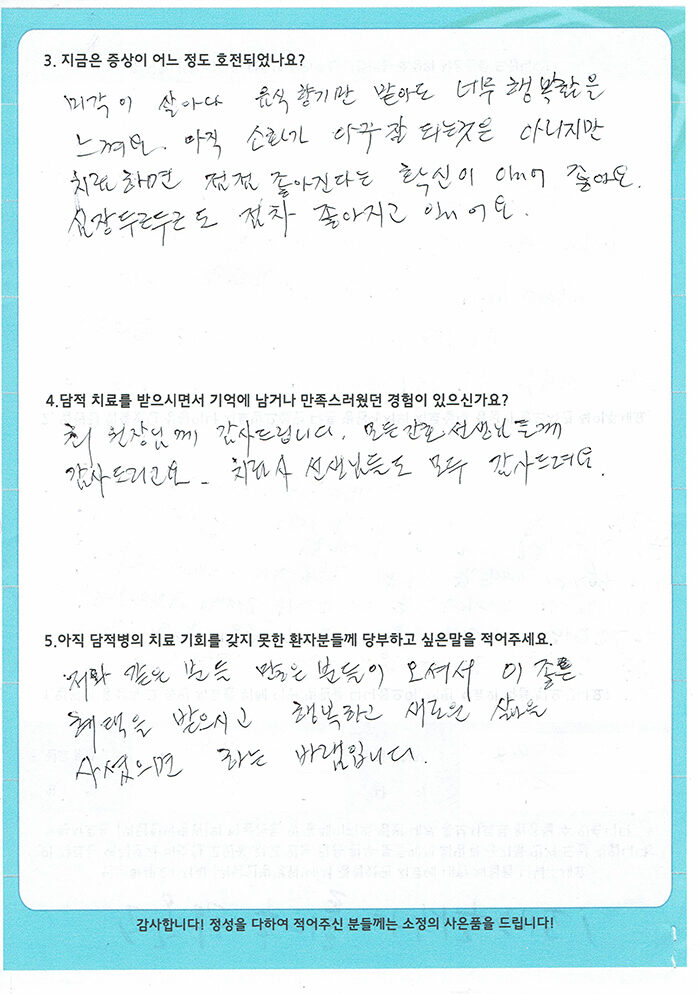 3. 지금은 증상이 어느 정도 호전되었나요?
미각이 살아나 음식 향기만 맡아도 너무 행복함을
느껴요. 아직 소화가 아주 잘 되는것은 아니지만
치료하면 점점 좋아진다는 확신이 있어 좋아요.
심장두근두근도 점차 좋아지고 있어요.
4.담적 치료를 받으시면서 기억에 남거나 만족스러웠던 경험이 있으신가요?
최 원장님께 감사드립니다. 모든 간호 선생님들께
감사드리고요. 치료사 선생님들도 모두 감사드려요.
5.아직 담적병의 치료 기회를 갖지 못한 환자분들께 당부하고 싶은말을 적어주세요.
저와 같은 분들 많은 분들이 오셔서 이 좋은
혜택을 받으시고 행복하고 새로운 삶을
사셨으면 하는 바램입니다.
감사합니다! 정성을 다하여 적어주신 분들께는 소정의 사은품을 드립니다!